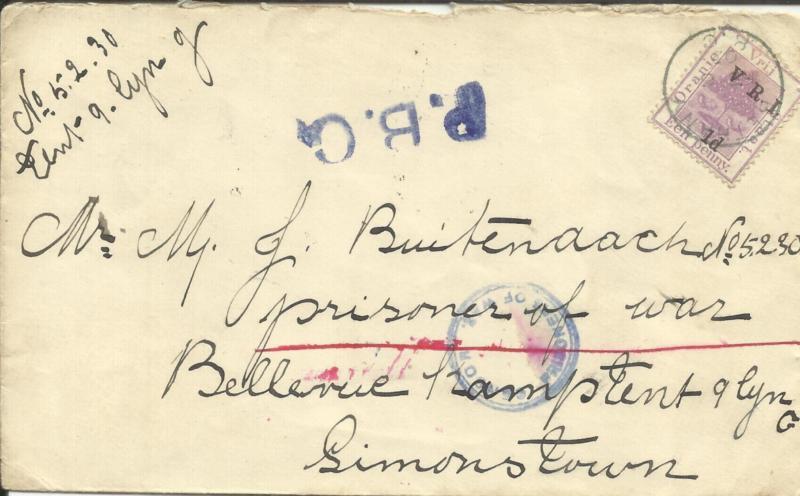 No. 5.2.30
Tent 9. lyn g
P.B.C
Oranje Vrij
V.R.I.
1d
Een penny.
Mr. M. J. Buitendach No 5230
prisoner of war
Bellevue kamp tent 9 lyn G
Simonstown
PRISONER OF W